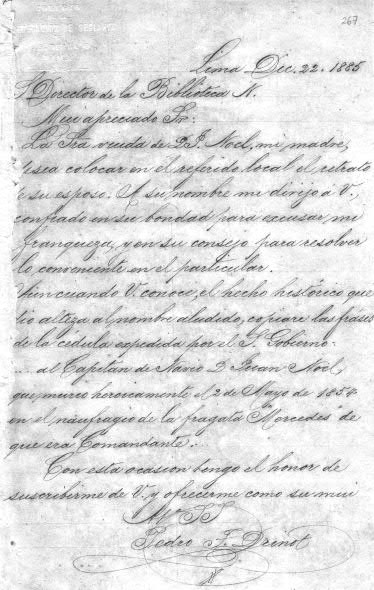 267
Lima Dic. 22. 1885
S Director de la Biblioteca N.
Mui apreciado Sr:
La Sra viuda de D. J. Noel, mi madre,
desea colocar en el referido local el retrato
de su esposo. A su nombre me dirijo á V.
confiado en su bondad para excusar mi
franqueza, y en su consejo para resolver
lo conveniente en el particular.
Aun cuando V. conoce, el hecho histórico que
dio alteza al nombre aludido, copiaré las frases
de la cédula expedida por el S. Gobierno:
.... al Capitan de Navio D. Juan Noel,
que murió heroicamente el 2 de Mayo de 1854
en el naufragio de la fragata "Mercedes" de
que era Comandante...
Con esta ocasion tengo el honor de
suscribirme de V. y ofrecerme como su mui
SS
Pedro F. Drinot
N